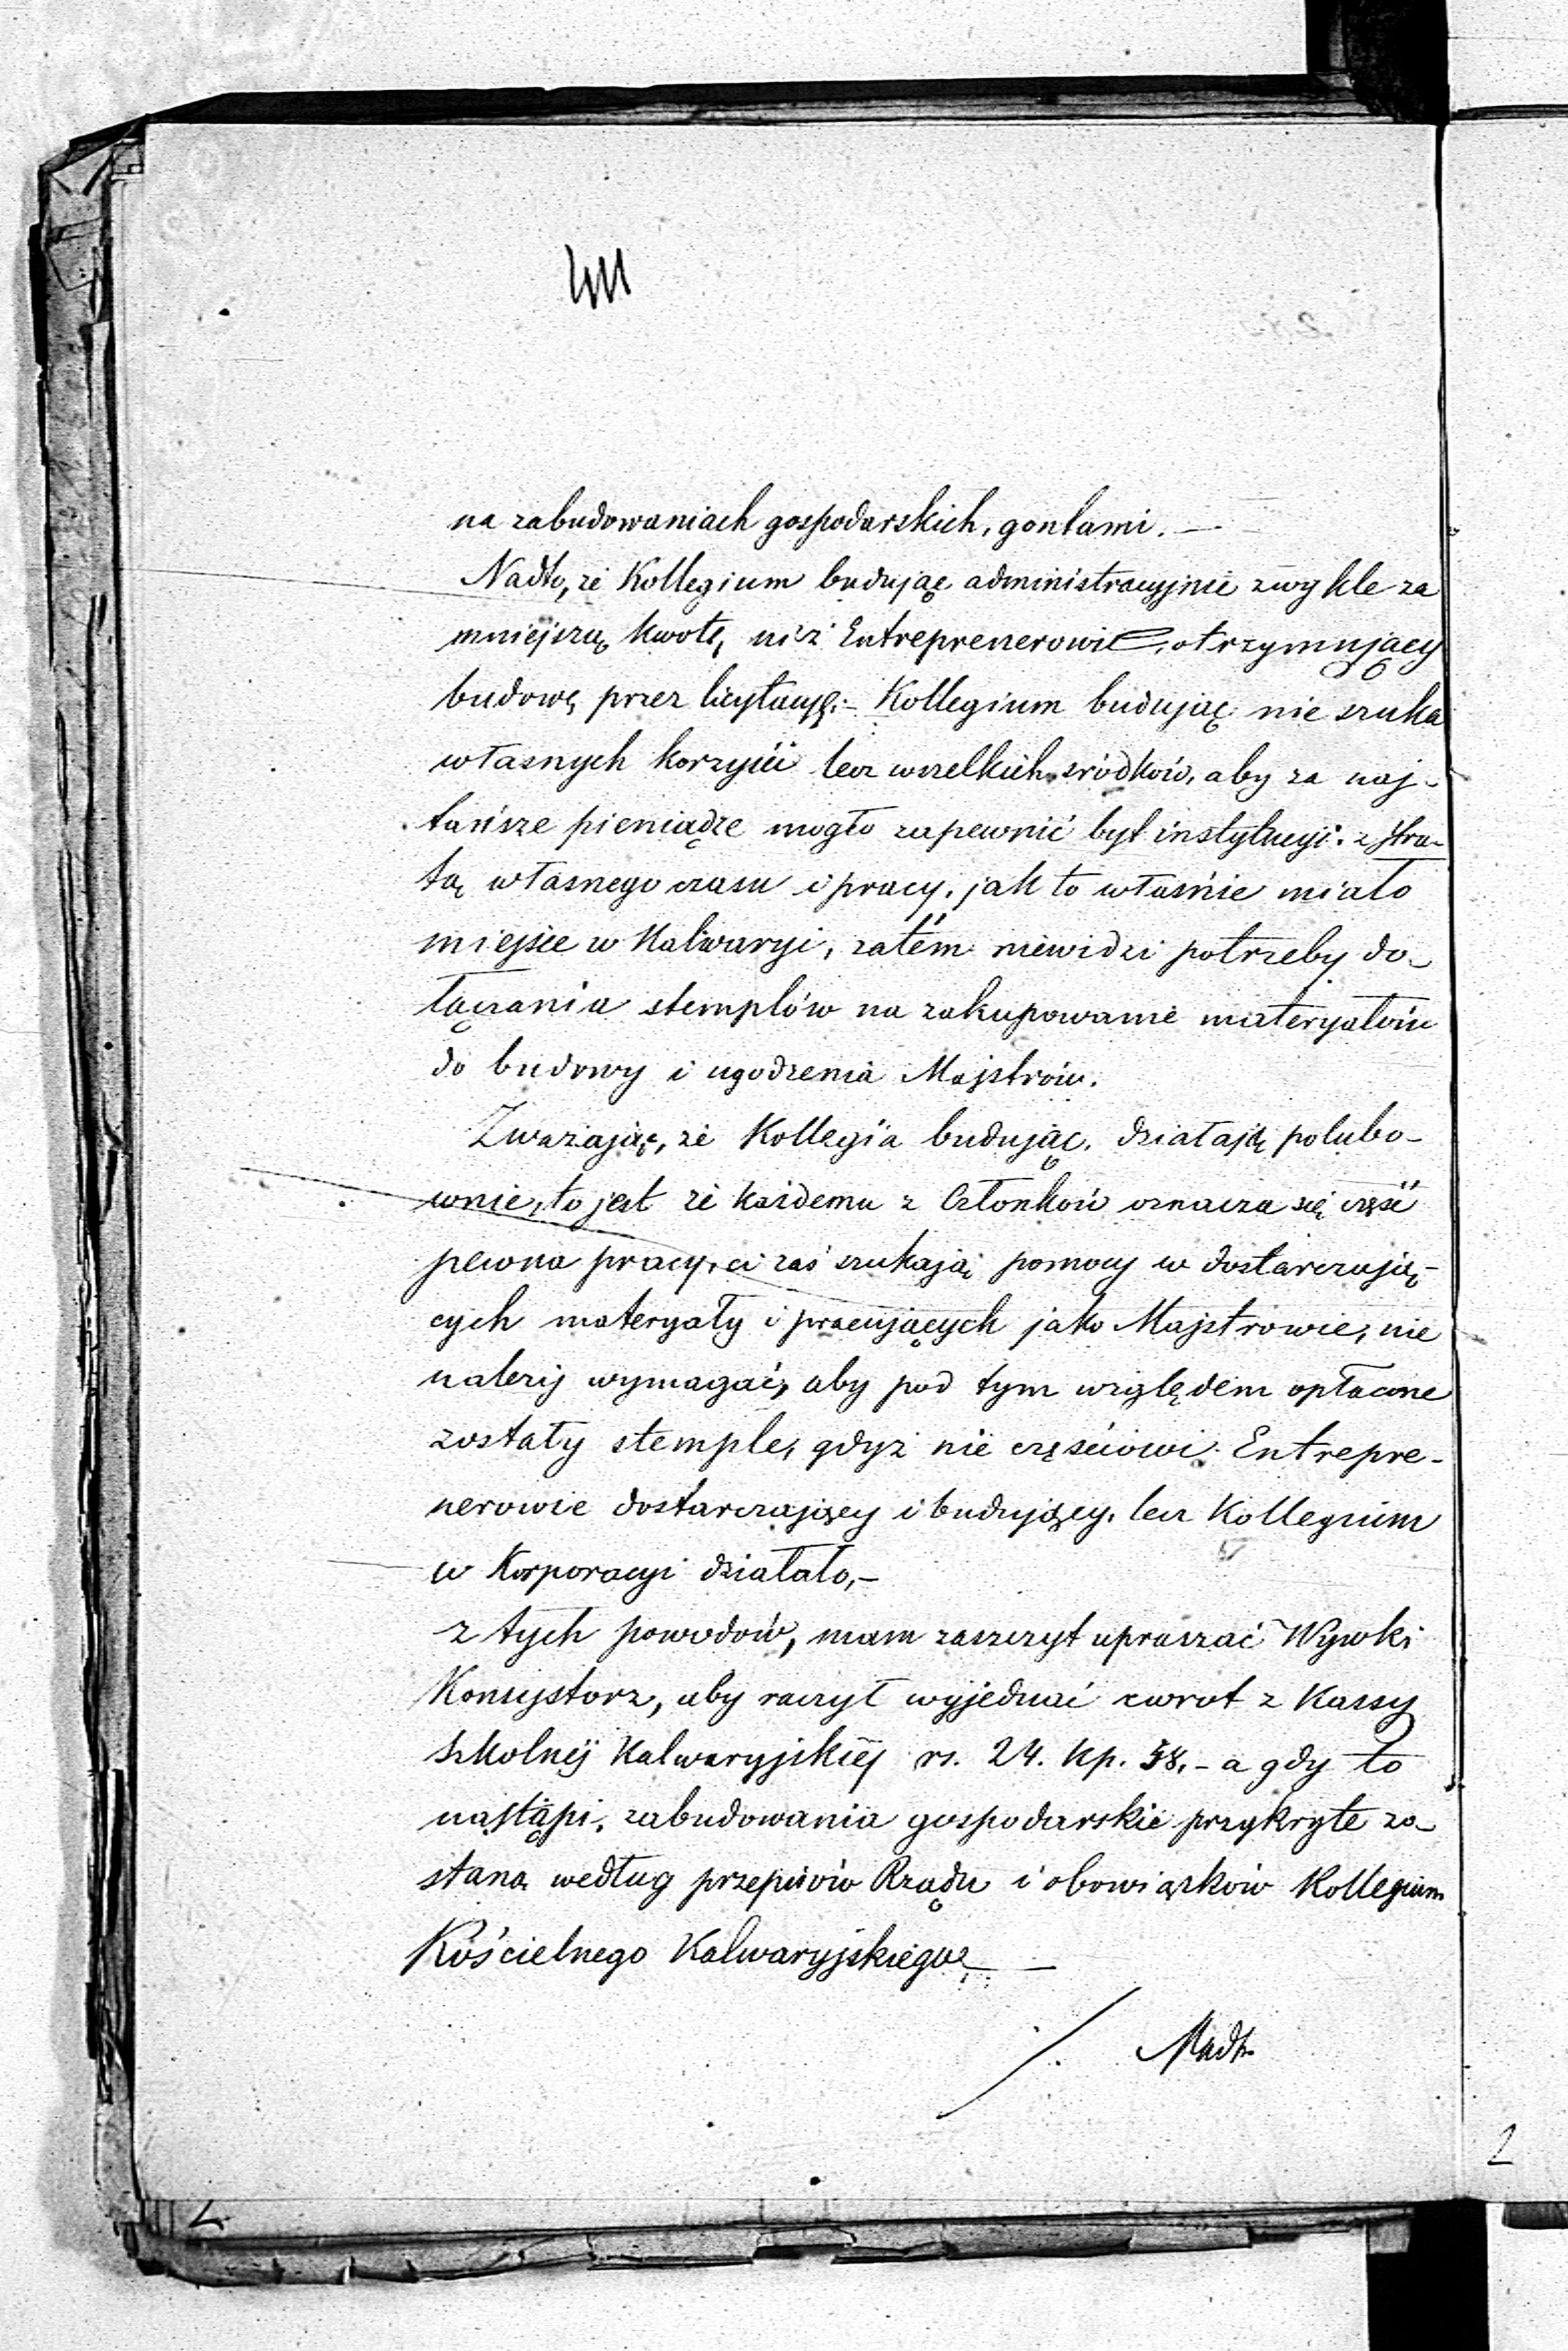 na zabudowaniach gospodarskich, gontami. —
Nadto, że Kollegium budując administracyjnie zwykle za
mniejszą kwotę, niż Entreprenerowie, otrzymujący
budowę przez licytacyę; – Kollegium budując nie szuka
własnych korzyści lecz wszelkich sródków, aby za naj-
tańsze pieniądze mogło zapewnić byt instytucyi. z stra-
tą własnego czasu i pracy, jak to właśnie miało
miejsce w Kalwaryi, zatém niewidzi potrzeby do-
łączania stemplów na zakupowanie materyałów
do budowy i ugodzenia Majstrów.
Zważając, że Kollegia budując, działają polubo-
wnie, to jest że każdemu z Członków oznacza się część
pewna pracy, ci zaś szukają pomocy w dostarczają-
cych materyały i pracujących jako Majstrowie, nie
należy wymagać, aby pod tym względem opłacone
zostały stemple, gdyż nie częściowi Entrepre-
nerowie dostarczający i budujący, lecz Kollegium
w Korporacyi działało, –
z tych powodów, mam zaszczyt upraszać Wysoki
Konsystorz, aby raczył wyjednać zwrot z Kassy
Szkolnéj Kalwaryjskiéj rs. 24. kp. 58. – a gdy to
nastąpi, zabudowania gospodarskie przykryte zo-
staną według przepisów Rządu i obowiązków Kollegium
Kościelnego Kalwaryjskiego. —
2